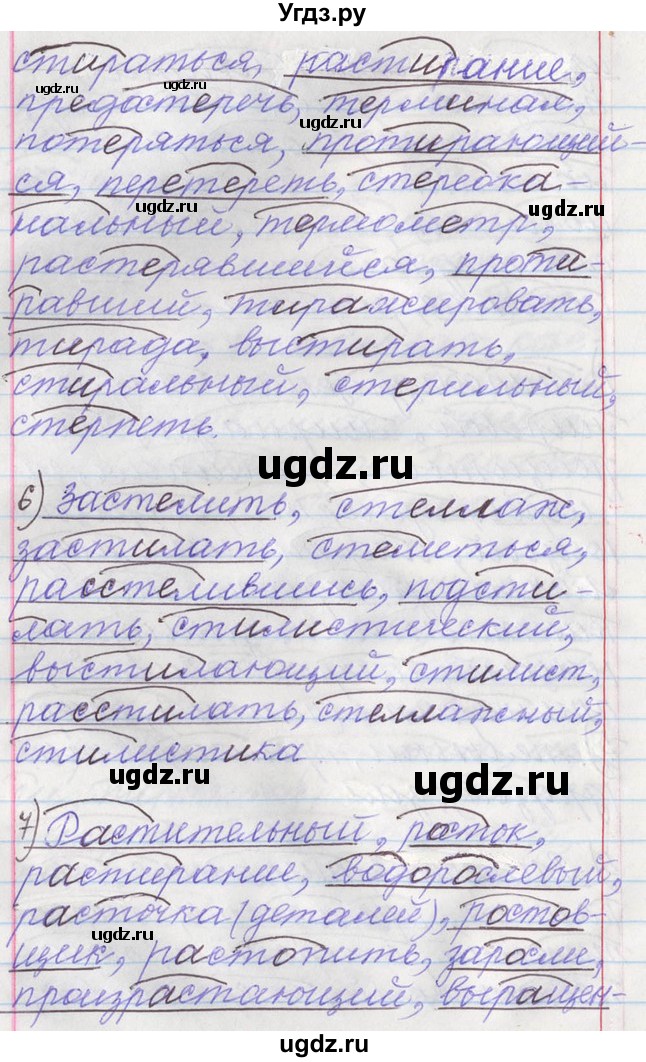 Угдз.ру
стираться, растирание,
предостеречь, терминал,
ugdz.ru
ugdz.ru
потеряться, протирающий-
ся, перетереть, стереока-
ugdz.ru
ugdz.ru
нальный, термометр,
растерявшийся, проти-
равший, тиражировать,
тирада, выстирать,
стиральный, стерильный,
стерпеть.
ugdz.ru
6) Застелить, стеллаж,
застилать, стелиться,
расстелившись, подсти-
лать, стилистический,
выстилающий, стилист,
расстилать, стеллажный,
стилистика
ugdz.ru
ugdz.ru
7) Растительный, росток,
растирание, водорослевый,
расточка (деталей), ростов-
ugdz.ru
щик, растопить, заросли,
произрастающий, выращен-
ugdz.ru
ugdz.ru